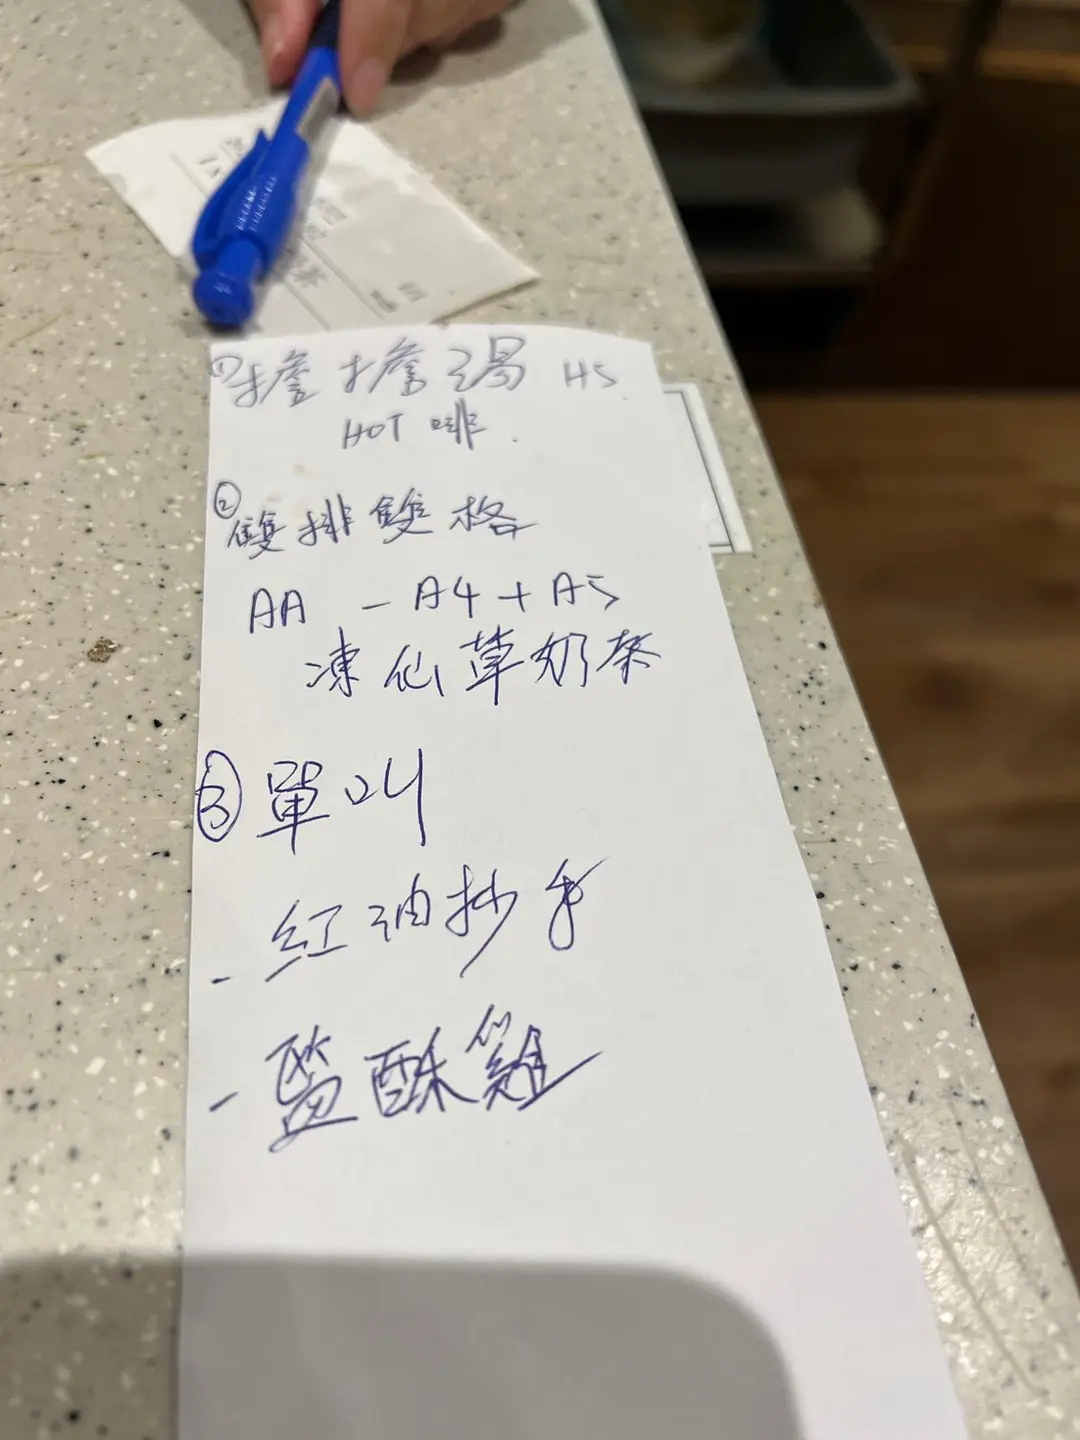 ① 擔擔湯 H5
HOT 啡.
② 雙排雙格
AA - A4 + A5
凍仙草奶茶
③ 單叫
- 紅油抄手
- 鹽酥雞